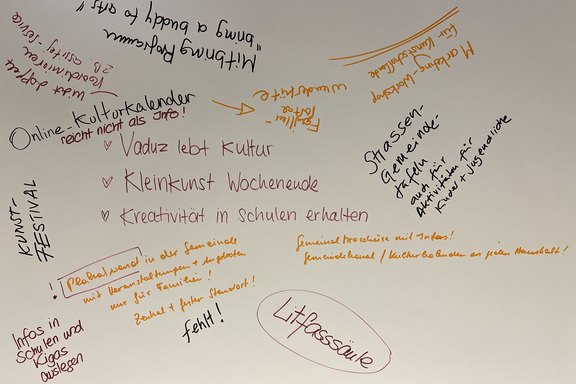 Mitbring Programm
"bring a buddy to arts"
nicht doppelt
ZB artnet-service
Marketing-Workshop
für Kunstschaffende
Familien-
karte
Wundertüte
Online-Kulturkalender
reicht nicht als Info!
♥ Vaduz lebt Kultur
♥ Kleinkunst Wochenende
♥ Kreativität in Schulen erhalten
Strassen-
Gemeinde-
tafeln
auch für
Aktivitäten für
Kinder + Jugendliche
KUNST-
FESTIVAL
! Plakatwand in der Gemeinde
mit Veranstaltungen + Angeboten
nur für Familien!
Zentral + fester Standort!
fehlt!
Gemeindebroschüre mit Infos!
Gemeindekanal / Kulturkalender an jeden Haushalt!
Litfasssäule
Infos in
Schulen und
Kigas
auslegen